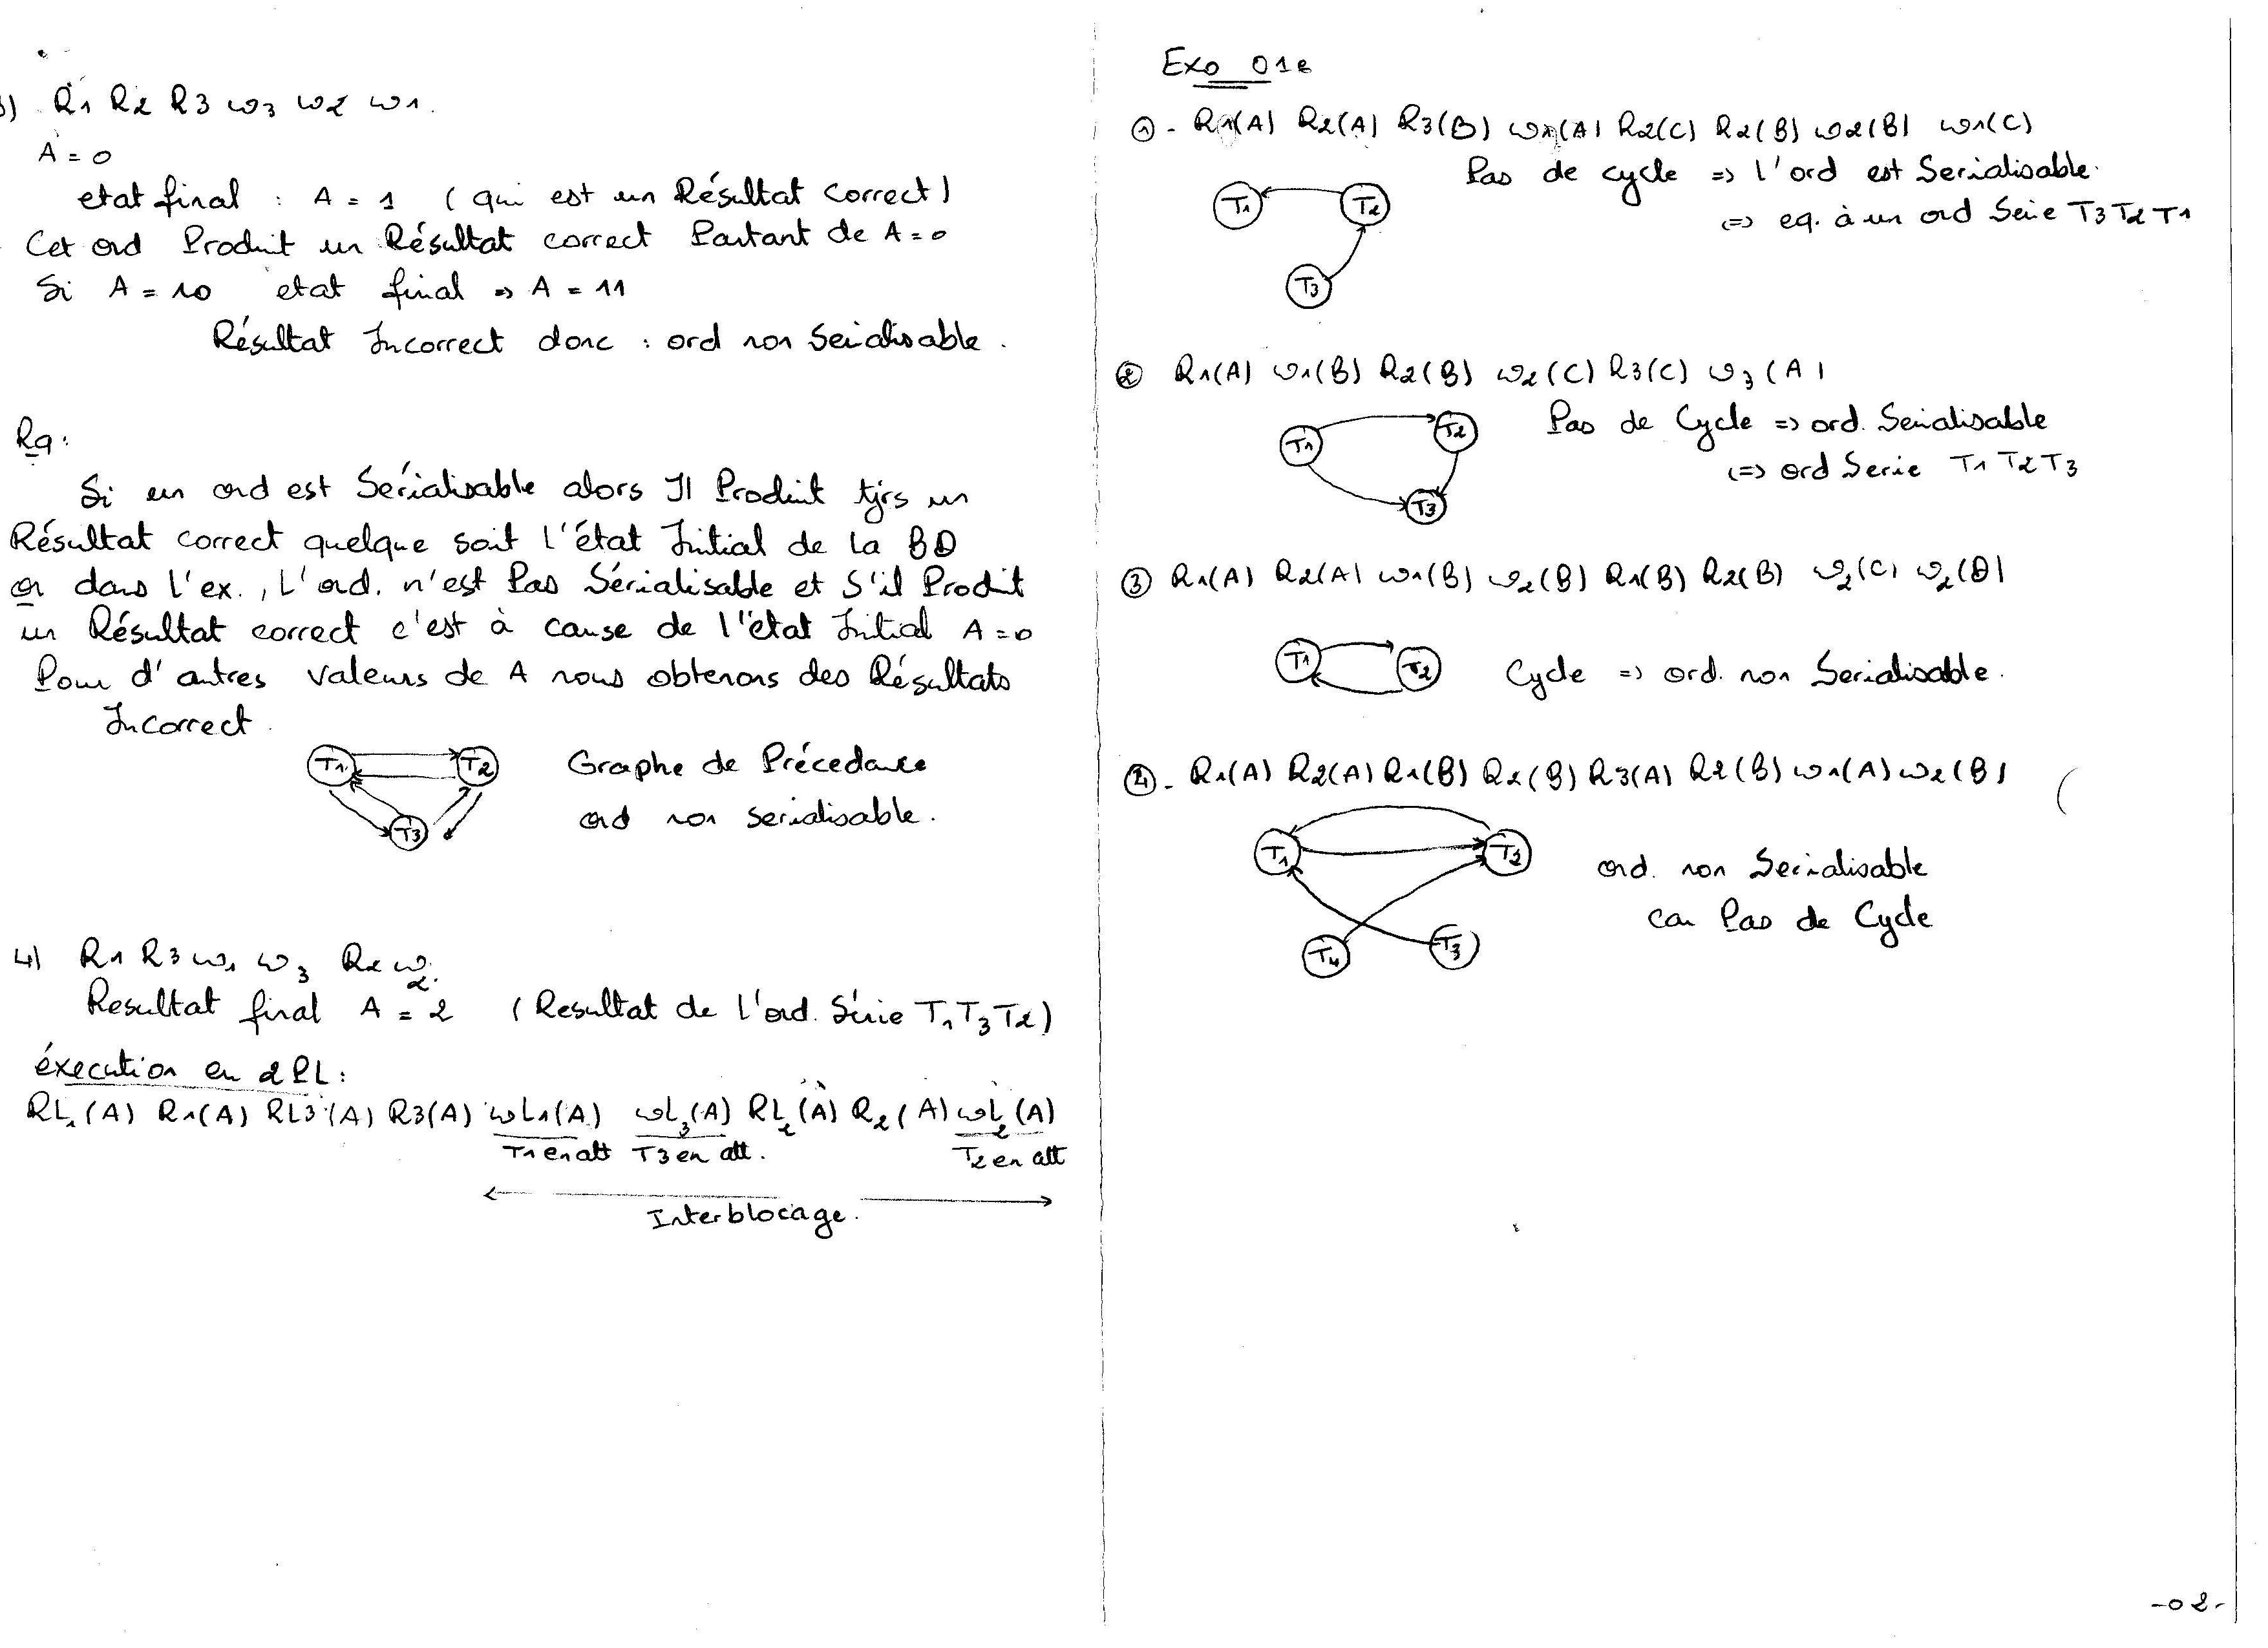 3) R1 R2 R3 w3 w2 w1.
A = 0
etat final : A = 1 (qui est un Résultat correct)
Cet ord Produit un Résultat correct Partant de A = 0
Si A = 10 etat final => A = 11
Résultat Incorrect donc : ord non Serialisable.
Rq:
Si un ord est Sérialisable alors Il Produit tjrs un
Résultat correct quelque soit l'état Initial de la BD
or dans l'ex., L'ord. n'est Pas Sérialisable et S'il Produit
un Résultat correct c'est à cause de l'état Initial A = 0
Pour d'autres valeurs de A nous obtenons des Résultats
Incorrect.
T1 T2 T3
Graphe de Précedance
ord non serialisable.
4) R1 R3 w1 w3 R2 w2.
Resultat final A = 2 (Resultat de l'ord. Série T1 T3 T2)
éxecution en 2PL:
RL1(A) R1(A) RL3(A) R3(A) wL1(A) wL3(A) RL2(A) R2(A) wL2(A)
T1 en att T3 en att. T2 en att
Interblocage.
Exo 01e
① - R1(A) R2(A) R3(B) w1(A) R2(C) R2(B) w2(B) w1(C)
Pas de cycle => l'ord est Serialisable.
<=> eq. à un ord Serie T3 T2 T1
T1 T2
T3
② R1(A) w1(B) R2(B) w2(C) R3(C) w3(A)
Pas de Cycle => ord. Serialisable
<=> ord Serie T1 T2 T3
T1 T2
T3
③ R1(A) R2(A) w1(B) w2(B) R1(B) R2(B) w2(C) w2(D)
T1 T2 Cycle => ord. non Serialisable.
④ - R1(A) R2(A) R1(B) R2(B) R3(A) R2(B) w1(A) w2(B)
T1 T2
ord. non Serialisable
car Pas de Cycle
T4 T3
-02-